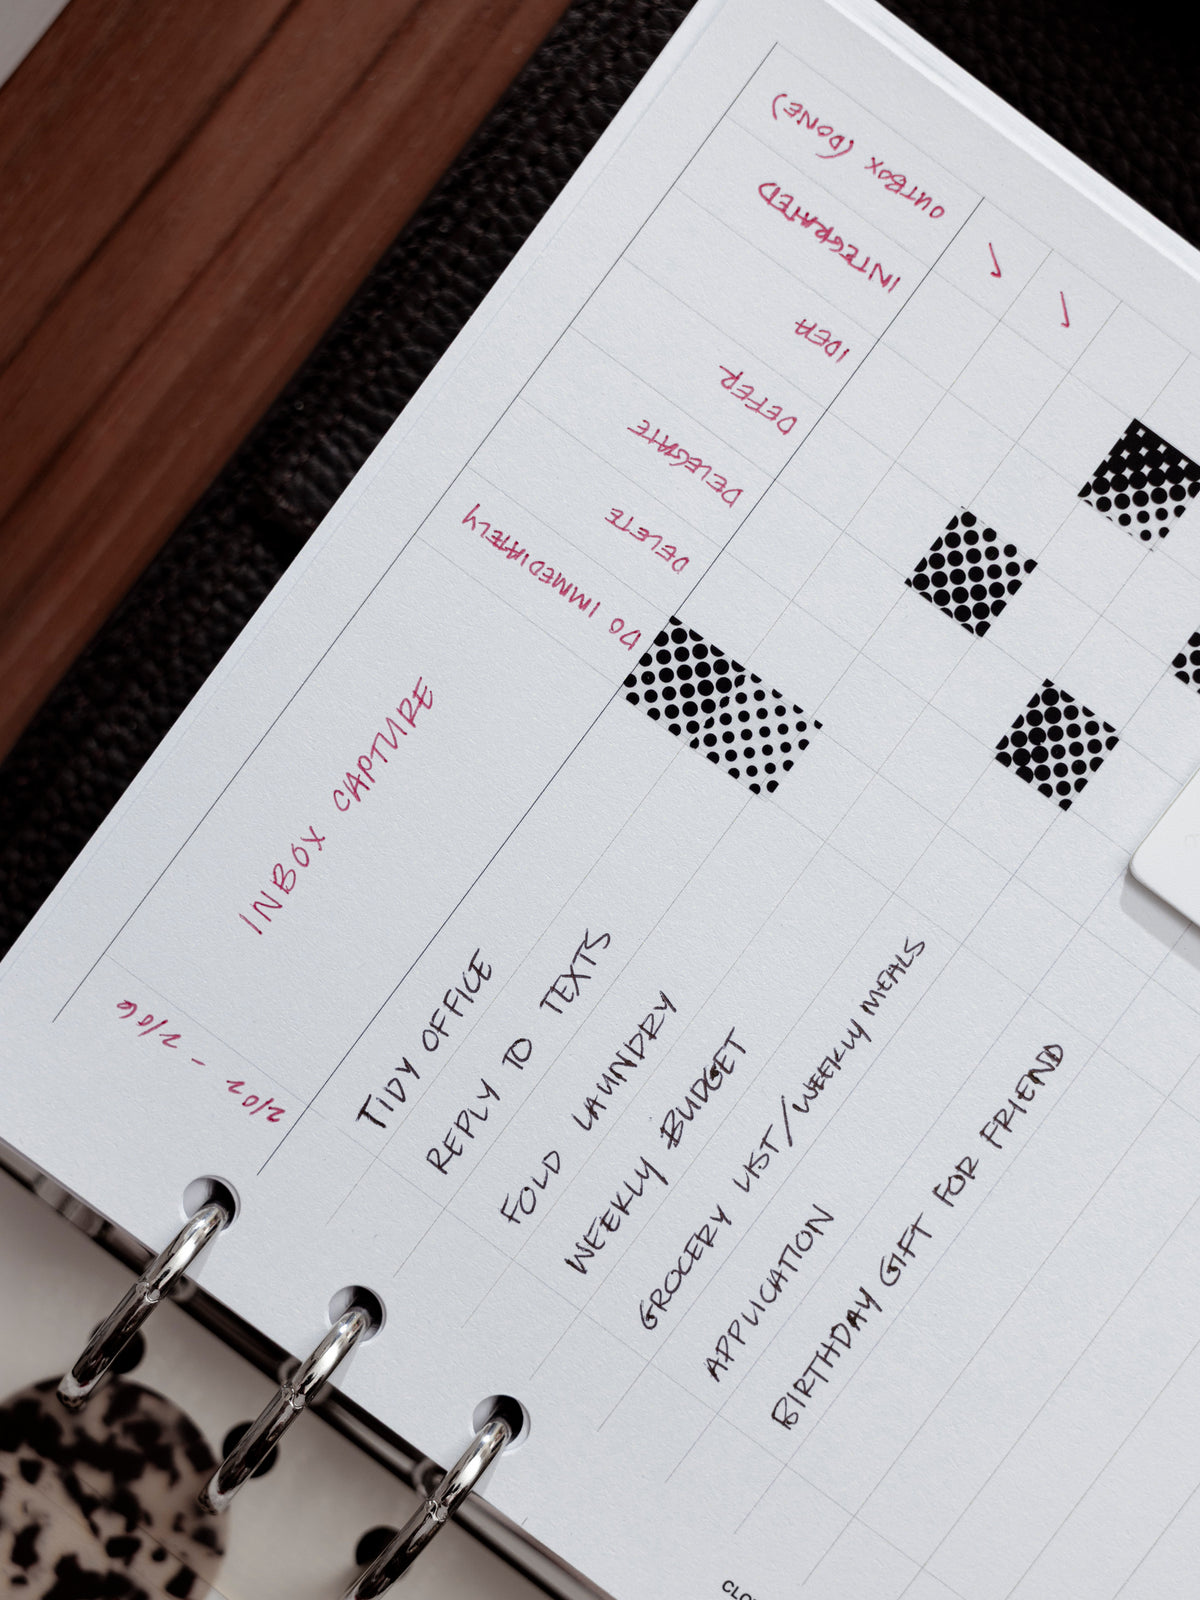 2/02 - 2/06
INBOX CAPTURE
DO IMMEDIATELY
DELETE
DELEGATE
DEFER
IDEA
INTEGRATED
OUTBOX (DONE)
TIDY OFFICE
REPLY TO TEXTS
FOLD LAUNDRY
WEEKLY BUDGET
GROCERY LIST/WEEKLY MEALS
APPLICATION
BIRTHDAY GIFT FOR FRIEND